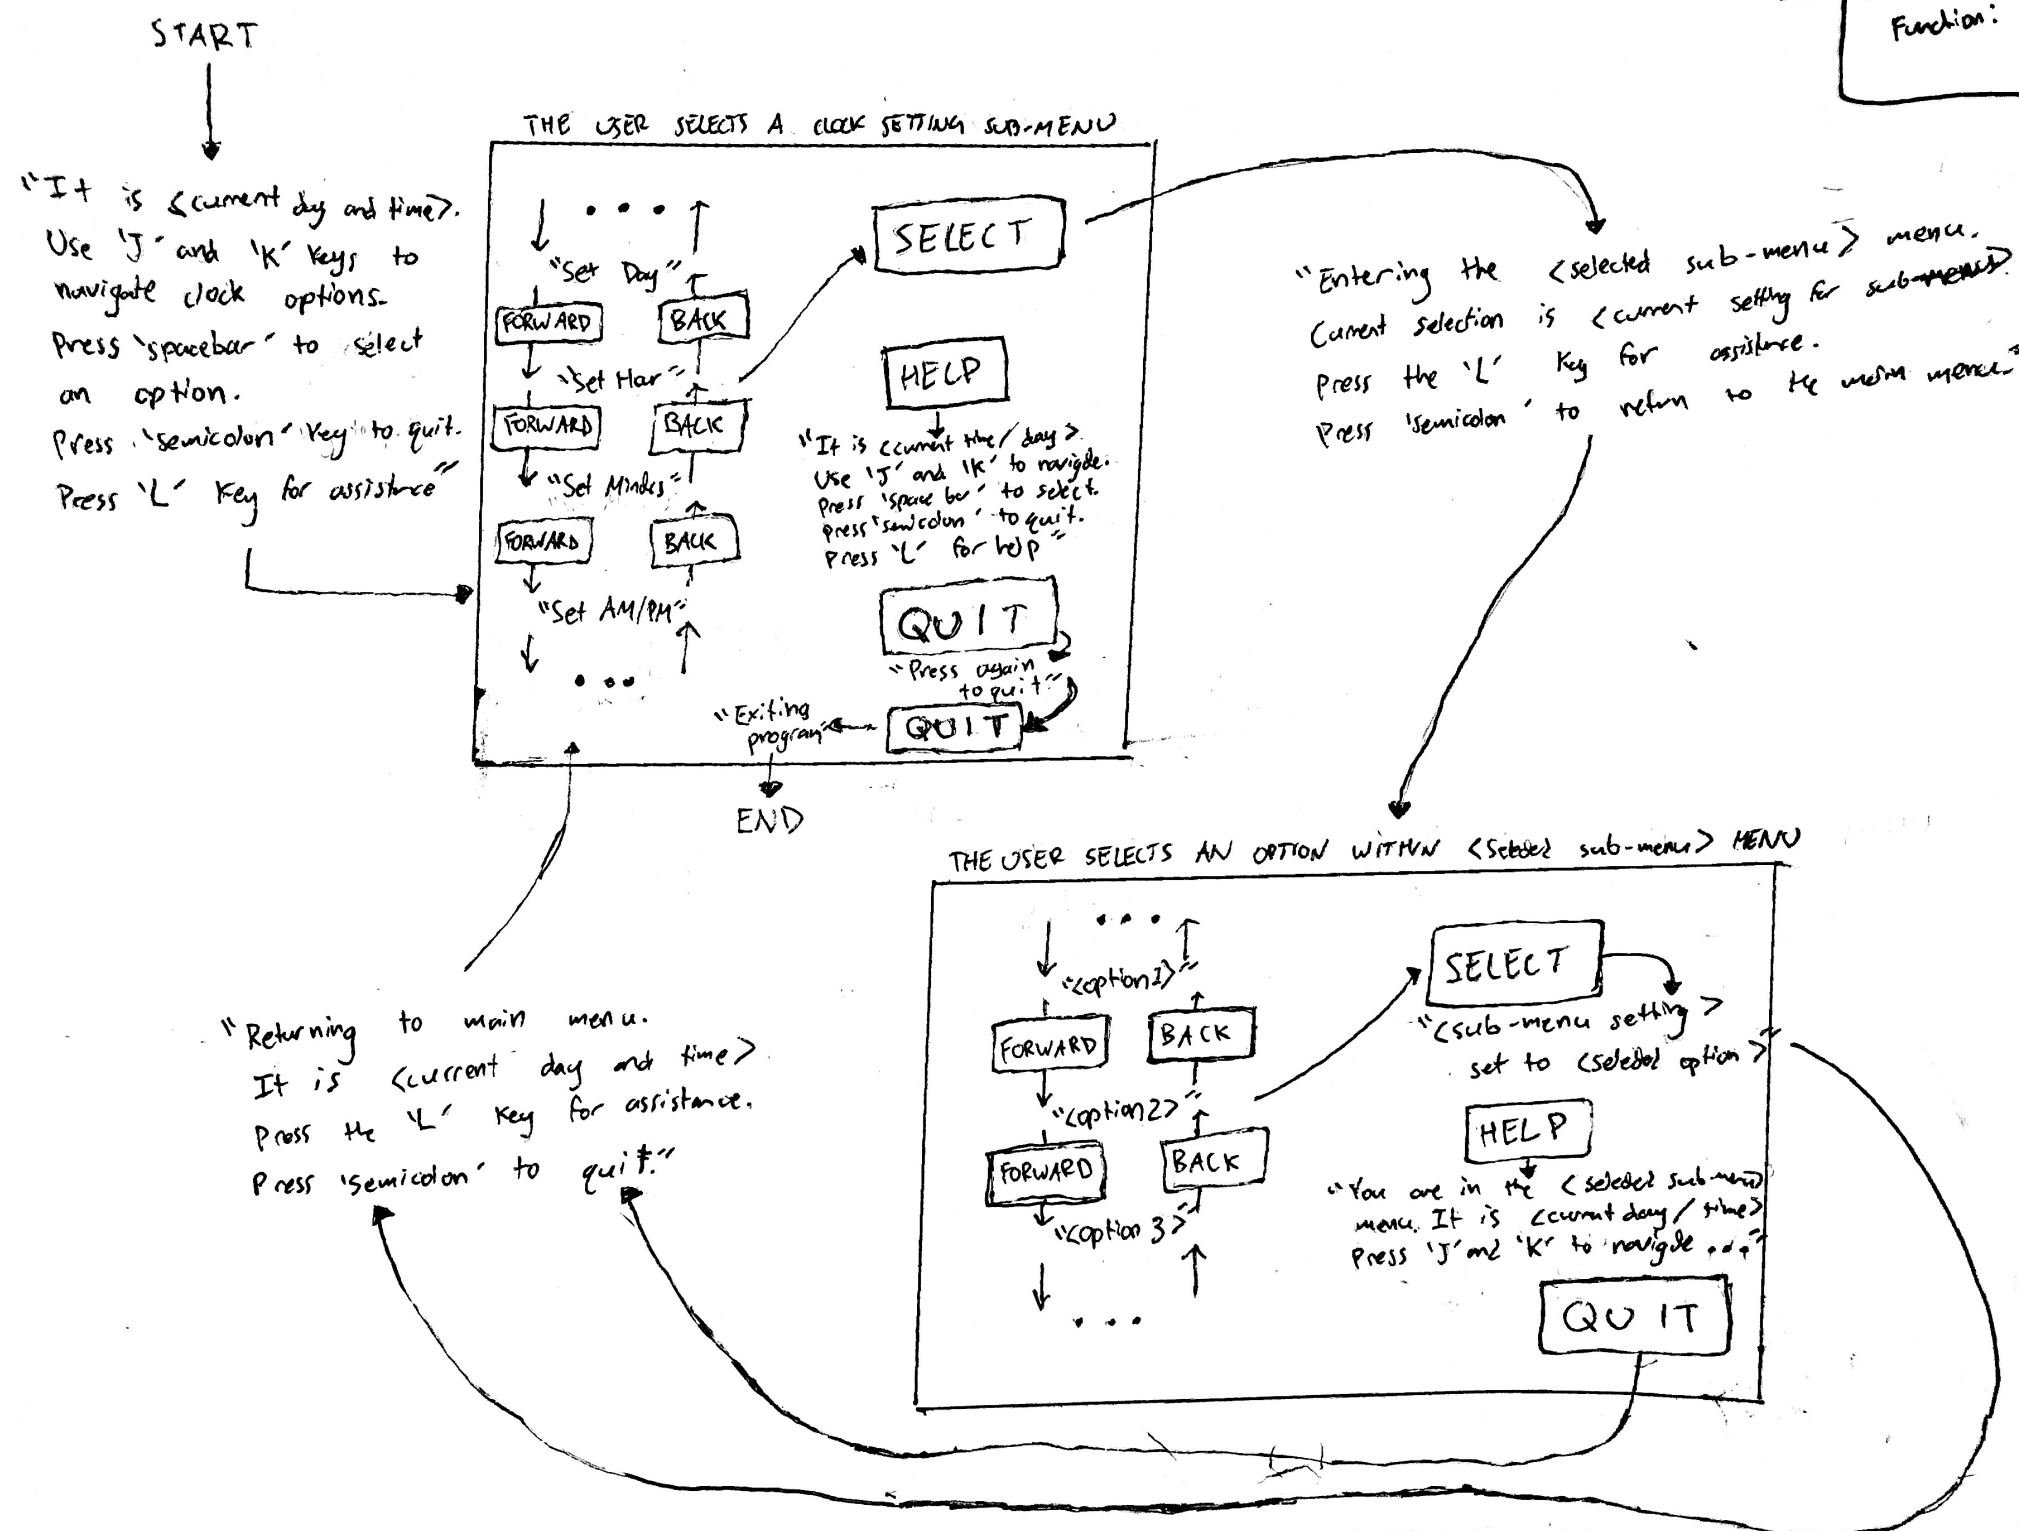 START
Function:
"It is <current day and time>.
Use 'J' and 'K' keys to
navigate clock options.
Press 'spacebar' to select
an option.
Press 'semicolon' key to quit.
Press 'L' key for assistance"
THE USER SELECTS A CLOCK SETTING SUB-MENU
"Set Day"
FORWARD
BACK
"Set Hour"
FORWARD
BACK
"Set Minutes"
FORWARD
BACK
"Set AM/PM"
SELECT
HELP
"It is <current time/day>.
Use 'J' and 'K' to navigate.
Press 'space bar' to select.
Press 'semicolon' to quit.
Press 'L' for help"
QUIT
"Press again
to quit"
QUIT
"Exiting
program"
END
"Entering the <selected sub-menu> menu.
Current selection is <current setting for sub-menu>
Press the 'L' key for assistance.
Press 'semicolon' to return to the main menu."
THE USER SELECTS AN OPTION WITHIN <selected sub-menu> MENU
...
"<option 1>"
FORWARD
BACK
"<option 2>"
FORWARD
BACK
"<option 3>"
...
SELECT
"<sub-menu setting>
set to <selected option>"
HELP
"You are in the <selected sub-menu>
menu. It is <current day/time>
Press 'J' and 'K' to navigate ..."
QUIT
"Returning to main menu.
It is <current day and time>
Press the 'L' key for assistance.
Press 'semicolon' to quit."